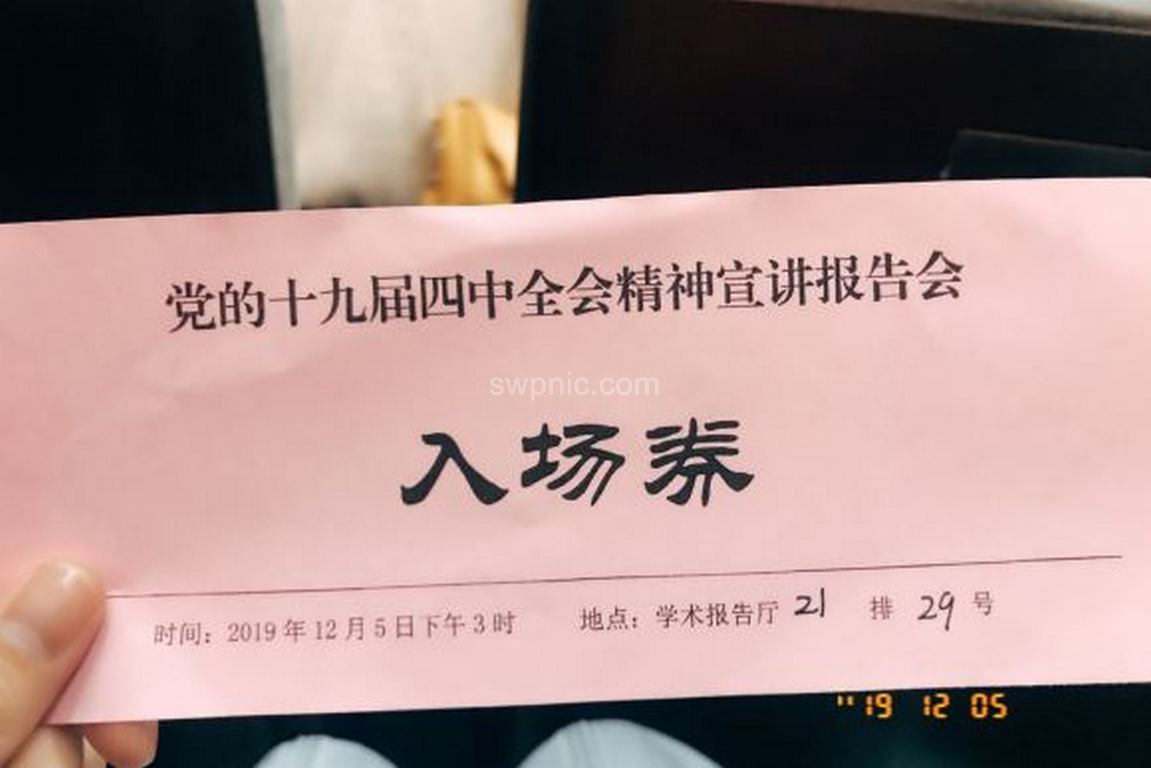 党的十九届四中全会精神宣讲报告会
swpnic.com
入场券
时间：2019年12月5日下午3时 地点：学术报告厅 21 排 29 号
"19 12 05